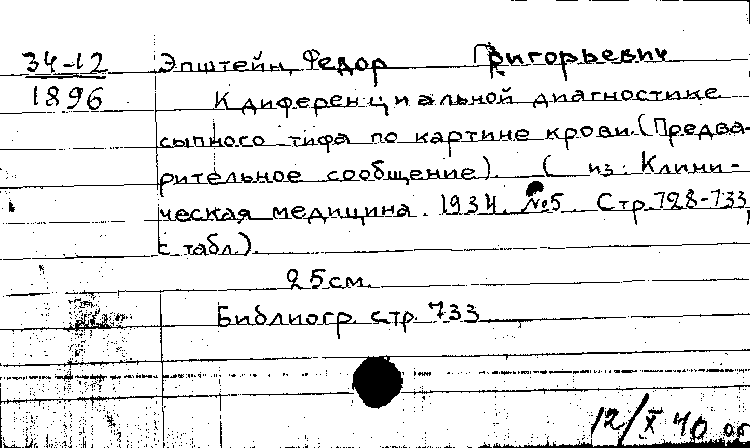 34-12 Эпштейн, Федор Григорьевич
1896 К диференциальной диагностике
сыпного тифа по картине крови. (Предва-
рительное сообщение). ( из: Клини-
ческая медицина. 1934. №5. Стр. 728-733,
с табл.).
25см.
Библиогр. стр. 733
12/X 40